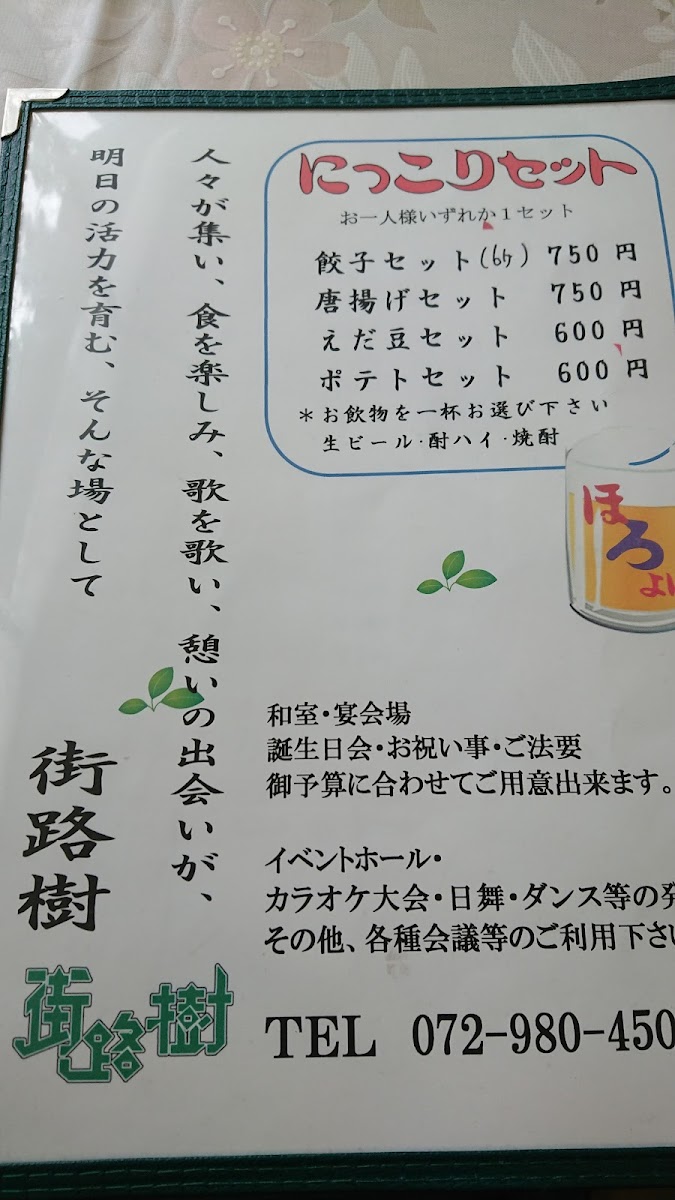 にっこりセット
お一人様いずれか１セット
餃子セット(6ケ) 750 円
唐揚げセット 750 円
えだ豆セット 600 円
ポテトセット 600 円
＊お飲物を一杯お選び下さい
生ビール・酎ハイ・焼酎
ほろよい
人々が集い、食を楽しみ、歌を歌い、憩いの出会いが、
明日の活力を育む、そんな場として
街路樹
和室・宴会場
誕生日会・お祝い事・ご法要
御予算に合わせてご用意出来ます。
イベントホール・
カラオケ大会・日舞・ダンス等の発
その他、各種会議等のご利用下さい
街路樹
TEL 072-980-450